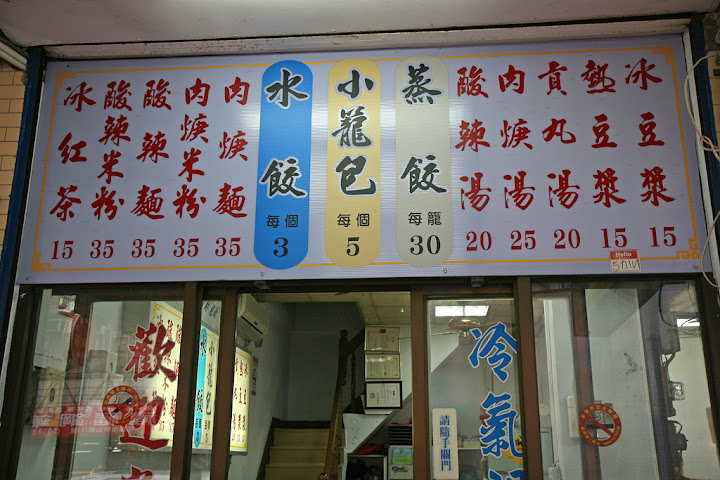 冰紅茶 15
酸辣米粉 35
酸辣麵 35
肉焿米粉 35
肉焿麵 35
水餃 每個 3
小籠包 每個 5
蒸餃 每籠 30
酸辣湯 20
肉焿湯 25
貢丸湯 20
熱豆漿 15
冰豆漿 15
Hello
歡迎
水餃
小籠包
冷氣
請隨手關門